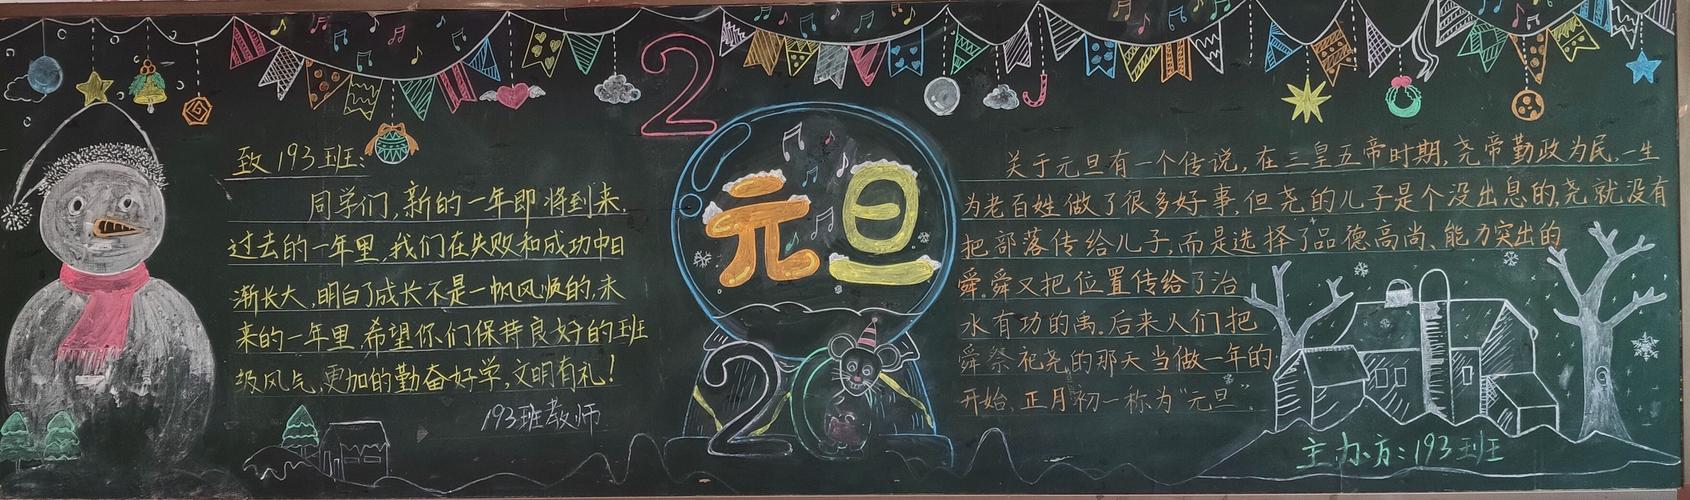 致193班:
同学们,新的一年即将到来,
过去的一年里,我们在失败和成功中日
渐长大,明白了成长不是一帆风顺的,未
来的一年里,希望你们保持良好的班
级风气,更加的勤奋好学,文明有礼!
193班教师
2
元旦
2
关于元旦有一个传说,在三皇五帝时期,尧帝勤政为民,一生
为老百姓做了很多好事,但尧的儿子是个没出息的,尧就没有
把部落传给儿子,而是选择了品德高尚、能力突出的
舜,舜又把位置传给了治
水有功的禹。后来人们把
舜祭祀尧的那天当做一年的
开始,正月初一称为“元旦”。
主办方:193班